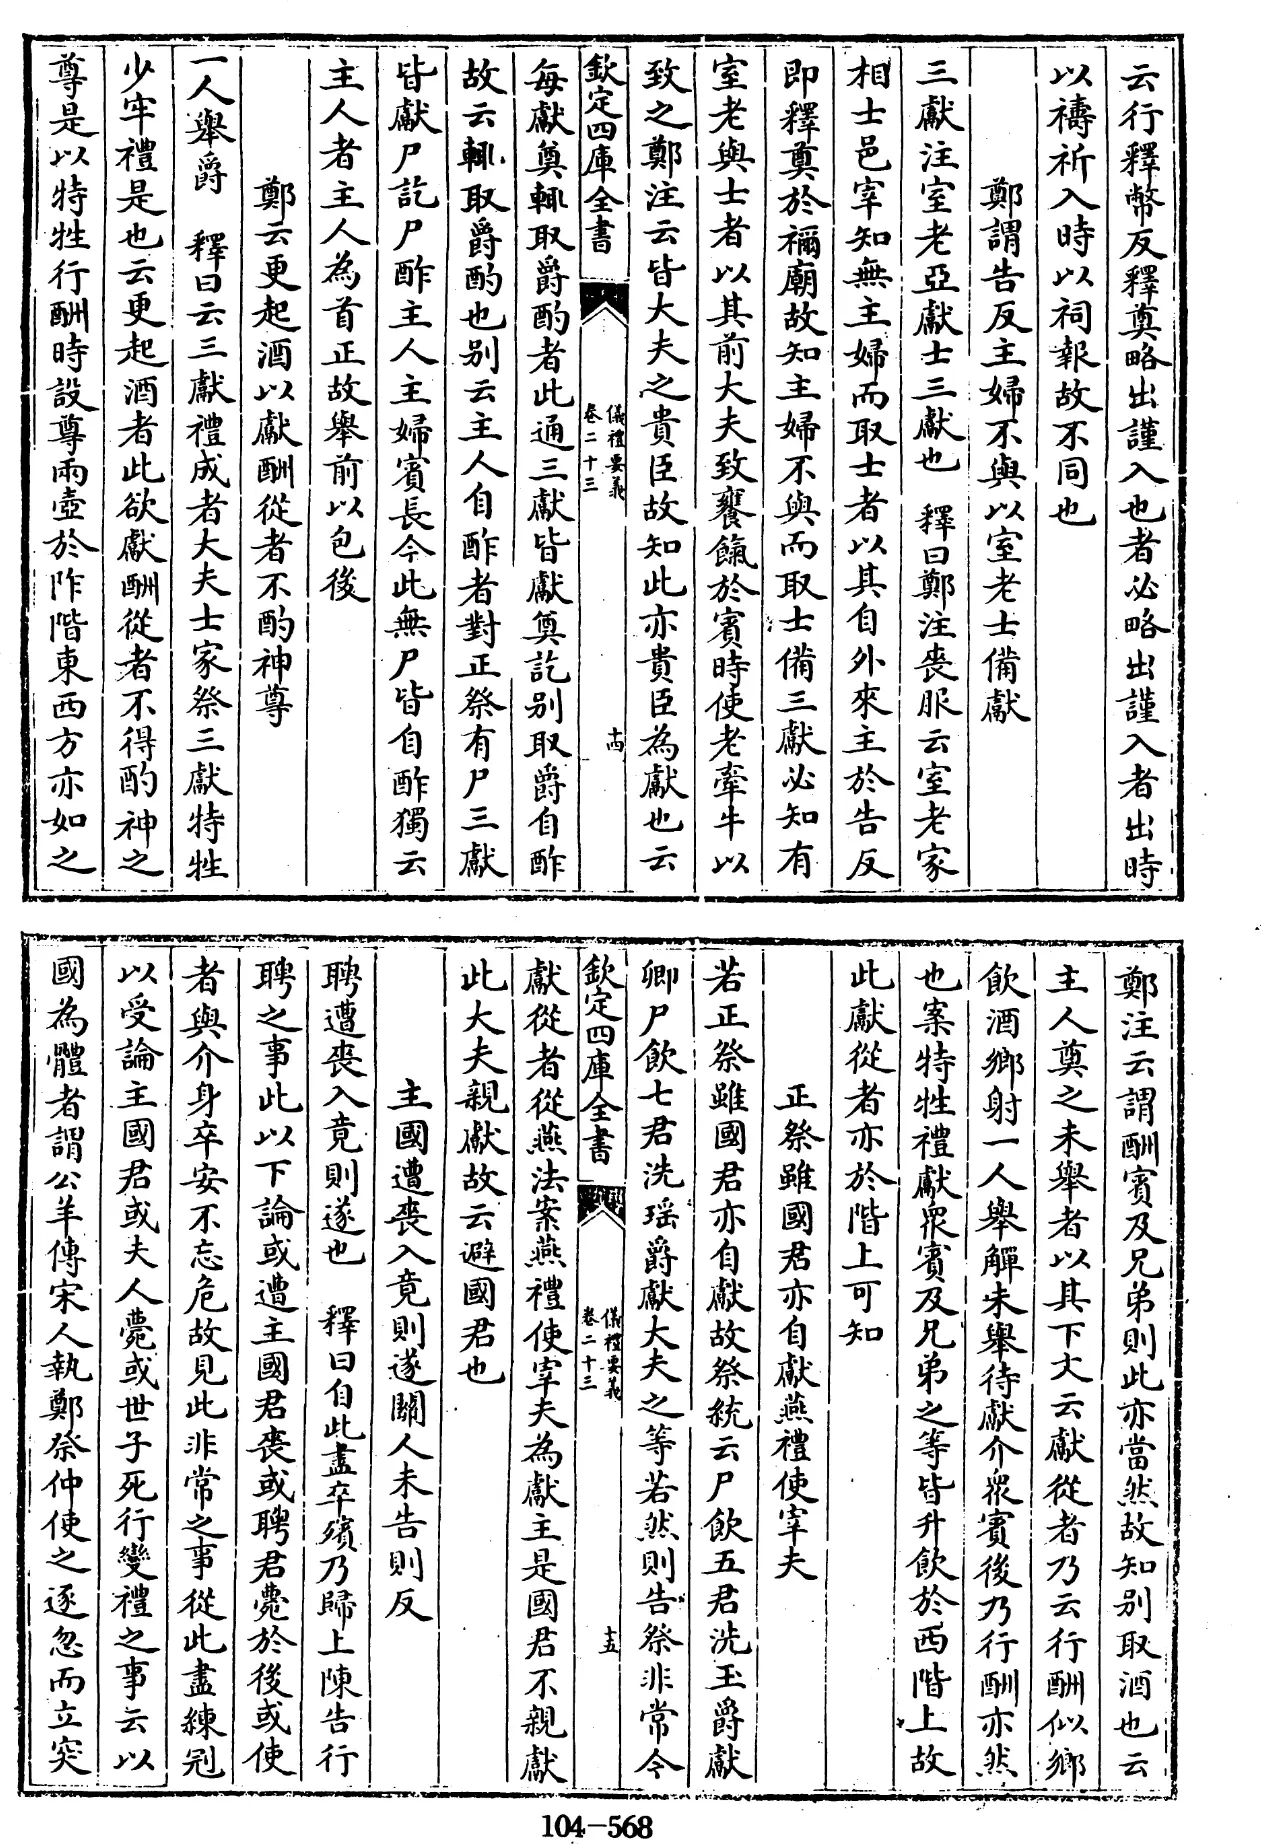 云行釋幣反釋奠略出謹入也者必略出謹入者出時
以禱祈入時以祠報故不同也
鄭謂告反主婦不與以室老士備獻
三獻注室老亞獻士三獻也　釋曰鄭注喪服云室老家
相士邑宰知無主婦而取士者以其自外來主於告反
即釋奠於禰廟故知主婦不與而取士備三獻必知有
室老與士者以其前大夫致饔餼於賓時使老牽牛以
致之鄭注云皆大夫之貴臣故知此亦貴臣為獻也云
欽定四庫全書
儀禮要義
卷二十三
十四
每獻奠輒取爵酌者此通三獻皆獻奠訖別取爵自酢
故云輒取爵酌也別云主人自酢者對正祭有尸三獻
皆獻尸訖尸酢主人主婦賓長今此無尸皆自酢獨云
主人者主人為首正故舉前以包後
鄭云更起酒以獻酬從者不酌神尊
一人舉爵　釋曰云三獻禮成者大夫士家祭三獻特牲
少牢禮是也云更起酒者此欲獻酬從者不得酌神之
尊是以特牲行酬時設尊兩壺於阼階東西方亦如之
鄭注云謂酬賓及兄弟則此亦當然故知別取酒也云
主人奠之未舉者以其下文云獻從者乃云行酬似鄉
飲酒鄉射一人舉觶未舉待獻介衆賓後乃行酬亦然
也案特牲禮獻衆賓及兄弟之等皆升飲於西階上故
此獻從者亦於階上可知
正祭雖國君亦自獻燕禮使宰夫
若正祭雖國君亦自獻故祭統云尸飲五君洗玉爵獻
卿尸飲七君洗瑤爵獻大夫之等若然則告祭非常今
欽定四庫全書
儀禮要義
卷二十三
十五
獻從者從燕法案燕禮使宰夫為獻主是國君不親獻
此大夫親獻故云避國君也
主國遭喪入竟則遂關人未告則反
聘遭喪入竟則遂也　釋曰自此盡卒殯乃歸上陳告行
聘之事此以下論或遭主國君喪或聘君薨於後或使
者與介身卒安不忘危故見此非常之事從此盡練冠
以受論主國君或夫人薨或世子死行變禮之事云以
國為體者謂公羊傳宋人執鄭祭仲使之逐忽而立突
104-568